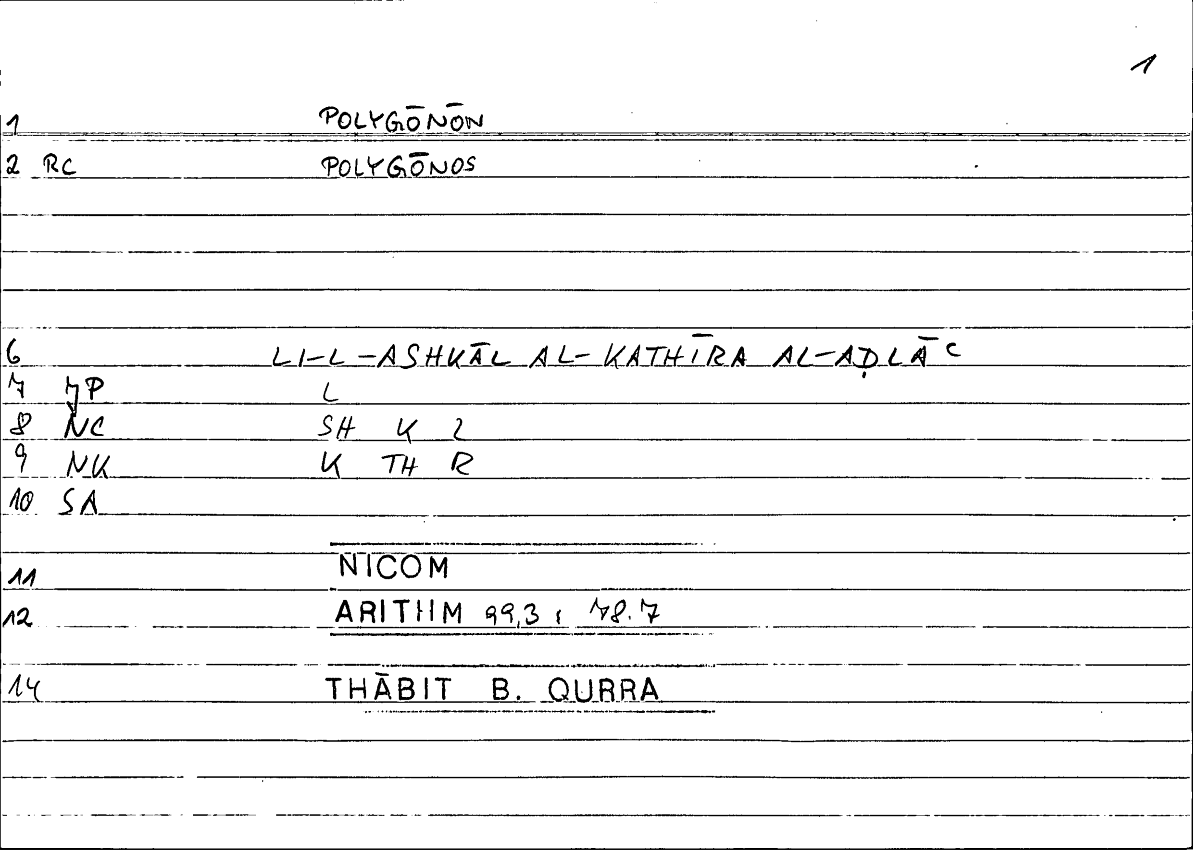 1
1 POLYGŌNŌN
2 RC POLYGŌNOS
6 LI-L-ASHKĀL AL-KATHĪRA AL-AḌLĀʿ
7 JP L
8 NC SH K L
9 NK K TH R
10 SA
11 NICOM
12 ARITHM 99,3 ; 78.7
14 THĀBIT B. QURRA